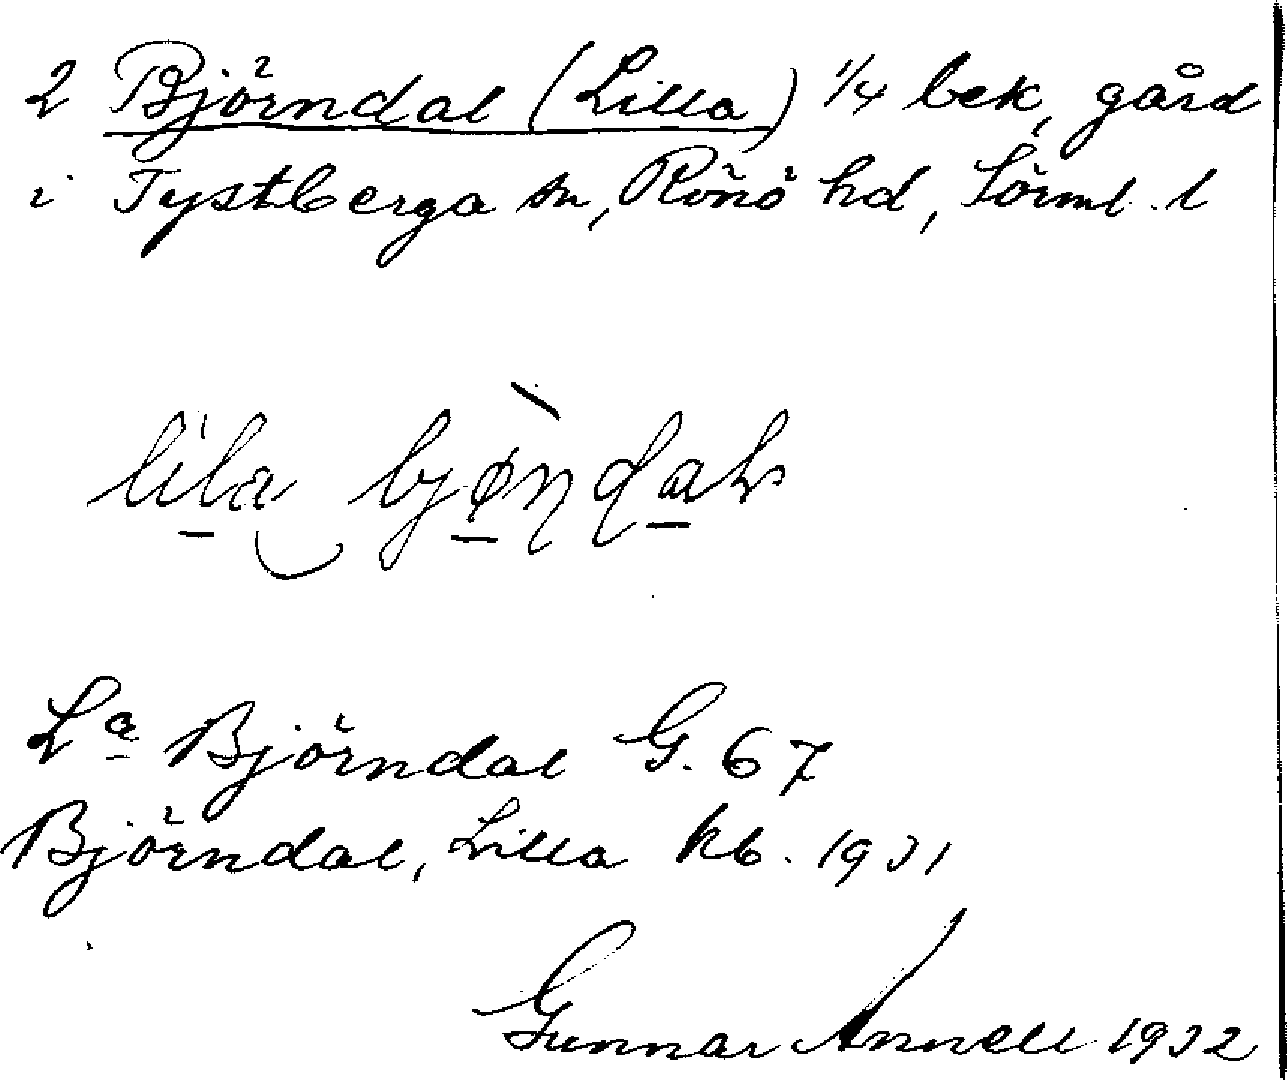 2 Björndal (Lilla) 1/4 bek, gård
i Tystberga sn, Rönö hd, Sörml. l
lila bjøṇḍal
Lª Björndal G. 67
Björndal, Lilla kb. 1931
Gunnar Annell 1932